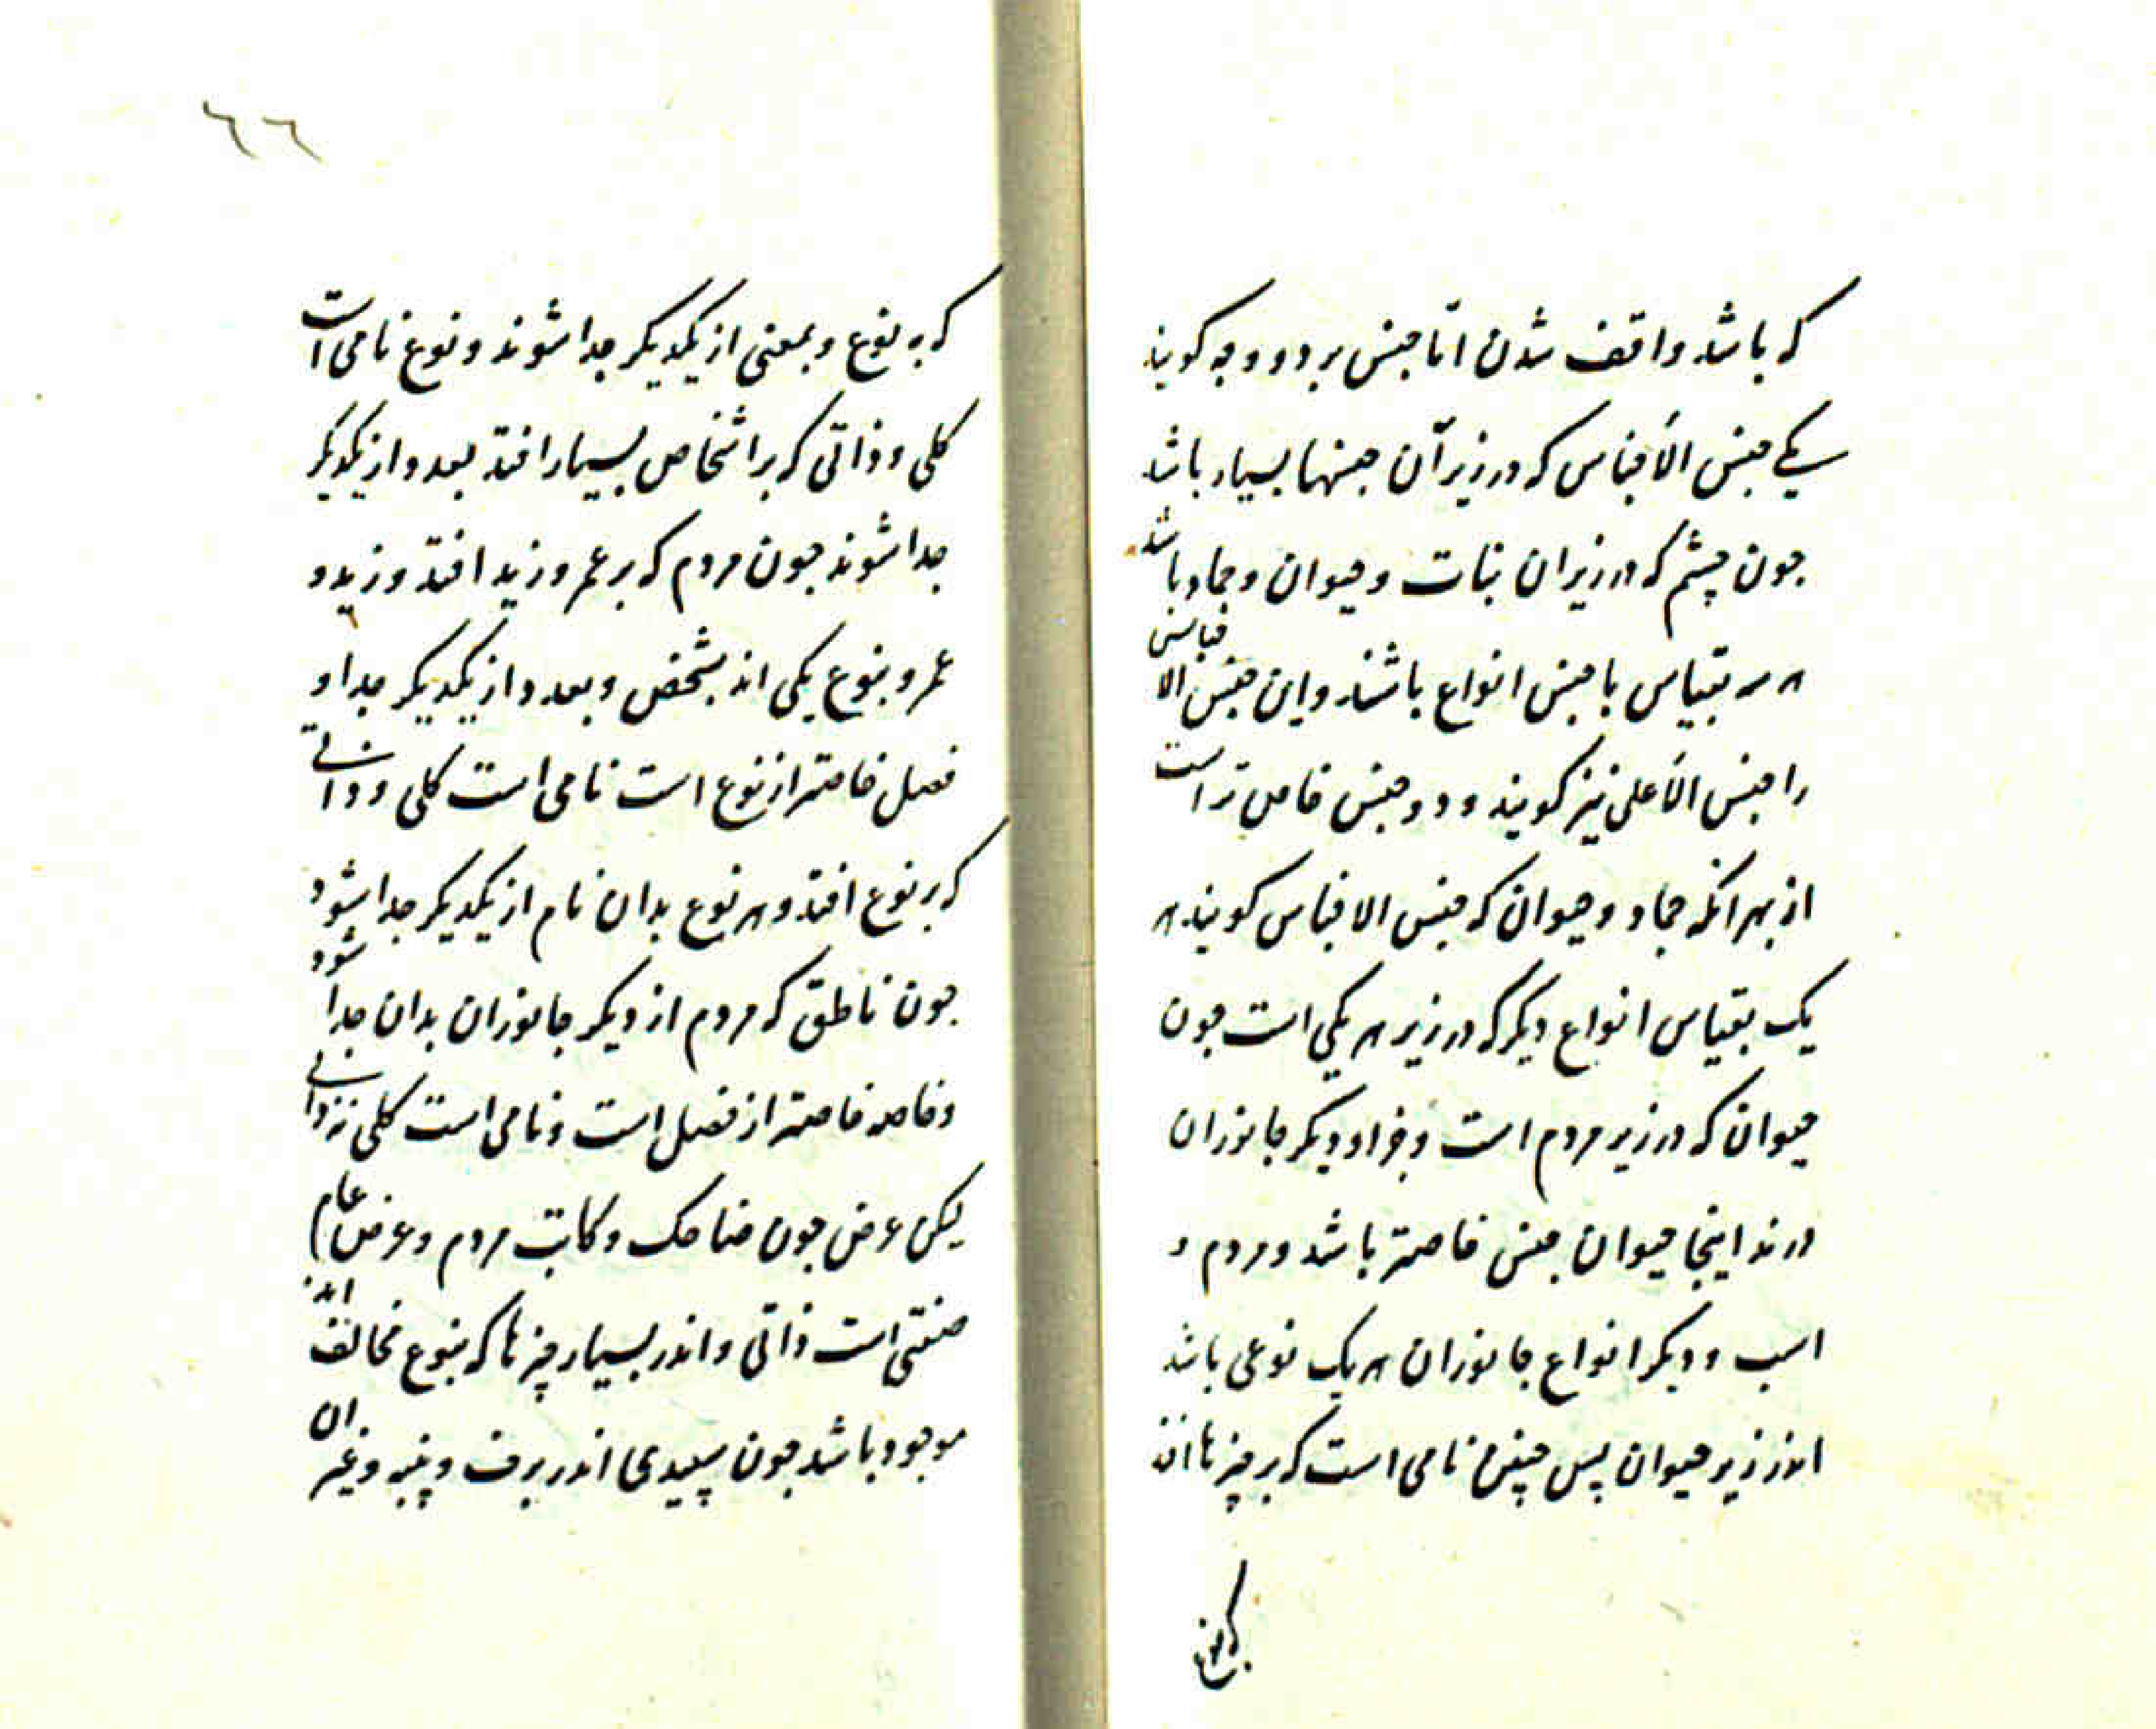 که باشد واقف شدن اما جنس بر دو وجه کویند
یکے جنس الأجناس که در زیر آن جنسها بسیار باشد
جون چشم که در زیر ان نبات و حیوان و جماد باشد
هر سه بقیاس با جنس انواع باشند و این جنس الاجناس
را جنس الأعلی نیز کویند و دو جنس خاص تر است
از بهر انکه جماد و حیوان که جنس الاجناس کویند هر
یک بقیاس انواع دیکر که در زیر هر یکی است جون
حیوان که در زیر مردم است و جز او دیکر جانوران
درند اینجا حیوان جنس خاصتر باشد و مردم و
اسب و دیکر انواع جانوران هر یک نوعی باشد
اندر زیر حیوان پس جنس نامی است که بر چیزها افتد
که به نوع
٦٦
که به نوع و بمعنی از یکدیکر جدا شوند و نوع نامی است
کلی و ذاتی که بر اشخاص بسیار افتد بعدد از یکدیکر
جدا شوند جون مردم که بر عمرو زید افتد و زید و
عمرو بنوع یکی اند بشخص و بعدد از یکدیکر جدا و
فصل خاصتر از نوع است نامی است کلی و ذاتے
که بر نوع افتد و هر نوع بدان نام از یکدیکر جدا شود
جون ناطق که مردم از دیکر جانوران بدان جدا شود
و خاصه خاصتر از فصل است و نامی است کلی نه ذاتے
لیکن عرض جون ضاحک و کاتب مردم و عرض عام
صفتی است ذاتی و اندر بسیار چیزها که بنوع مخالف اند
موجود باشد جون سپیدی اندر برف و پنبه و غیر ان